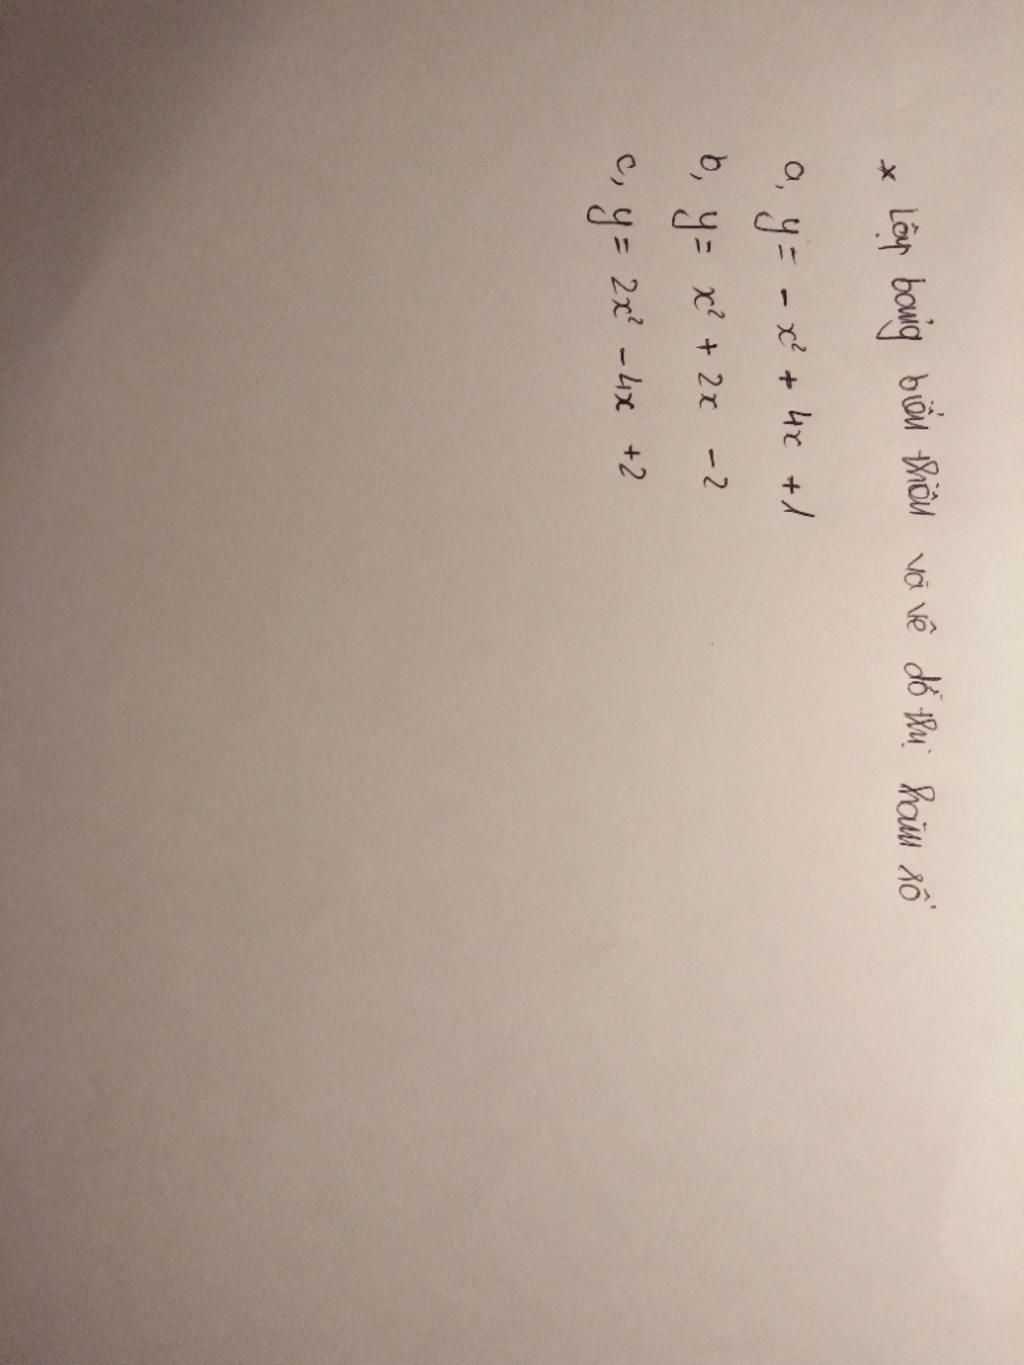 * Lập bảng biến thiên và vẽ đồ thị hàm số
a, y = - x² + 4x + 1
b, y = x² + 2x - 2
c, y = 2x² - 4x + 2